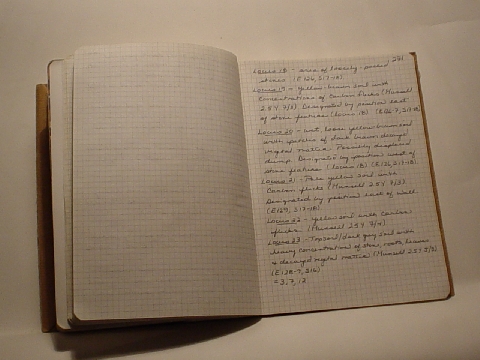 231
Locus 18 - area of loosely-packed
stones (E126, S17-18).
Locus 19 - Yellow-brown soil with
concentrations of carbon flecks (Munsell
2.5Y 7/3) Designated by position east
of stone features (locus 18)
Locus 20 - wet, loose yellow brown soil
with patches of dark brown decayed
vegetal matter. Possibly displaced
dump. Designated by position west of
stone feature (locus 18) (E126, S17-18).
Locus 21 - Pale yellow soil with
carbon flecks (Munsell 2.5Y 7/3)
Designated by position east of wall
(E129, S17-18)
Locus 22 - Yellow soil with carbon
flecks (Munsell 2.5Y 7/4)
Locus 23 - Topsoil/dark grey soil with
heavy concentration of roots, leaves
& decayed vegetal matter (Munsell 2.5Y 5/2)
(E128-7, S16)
= 3, 7, 13